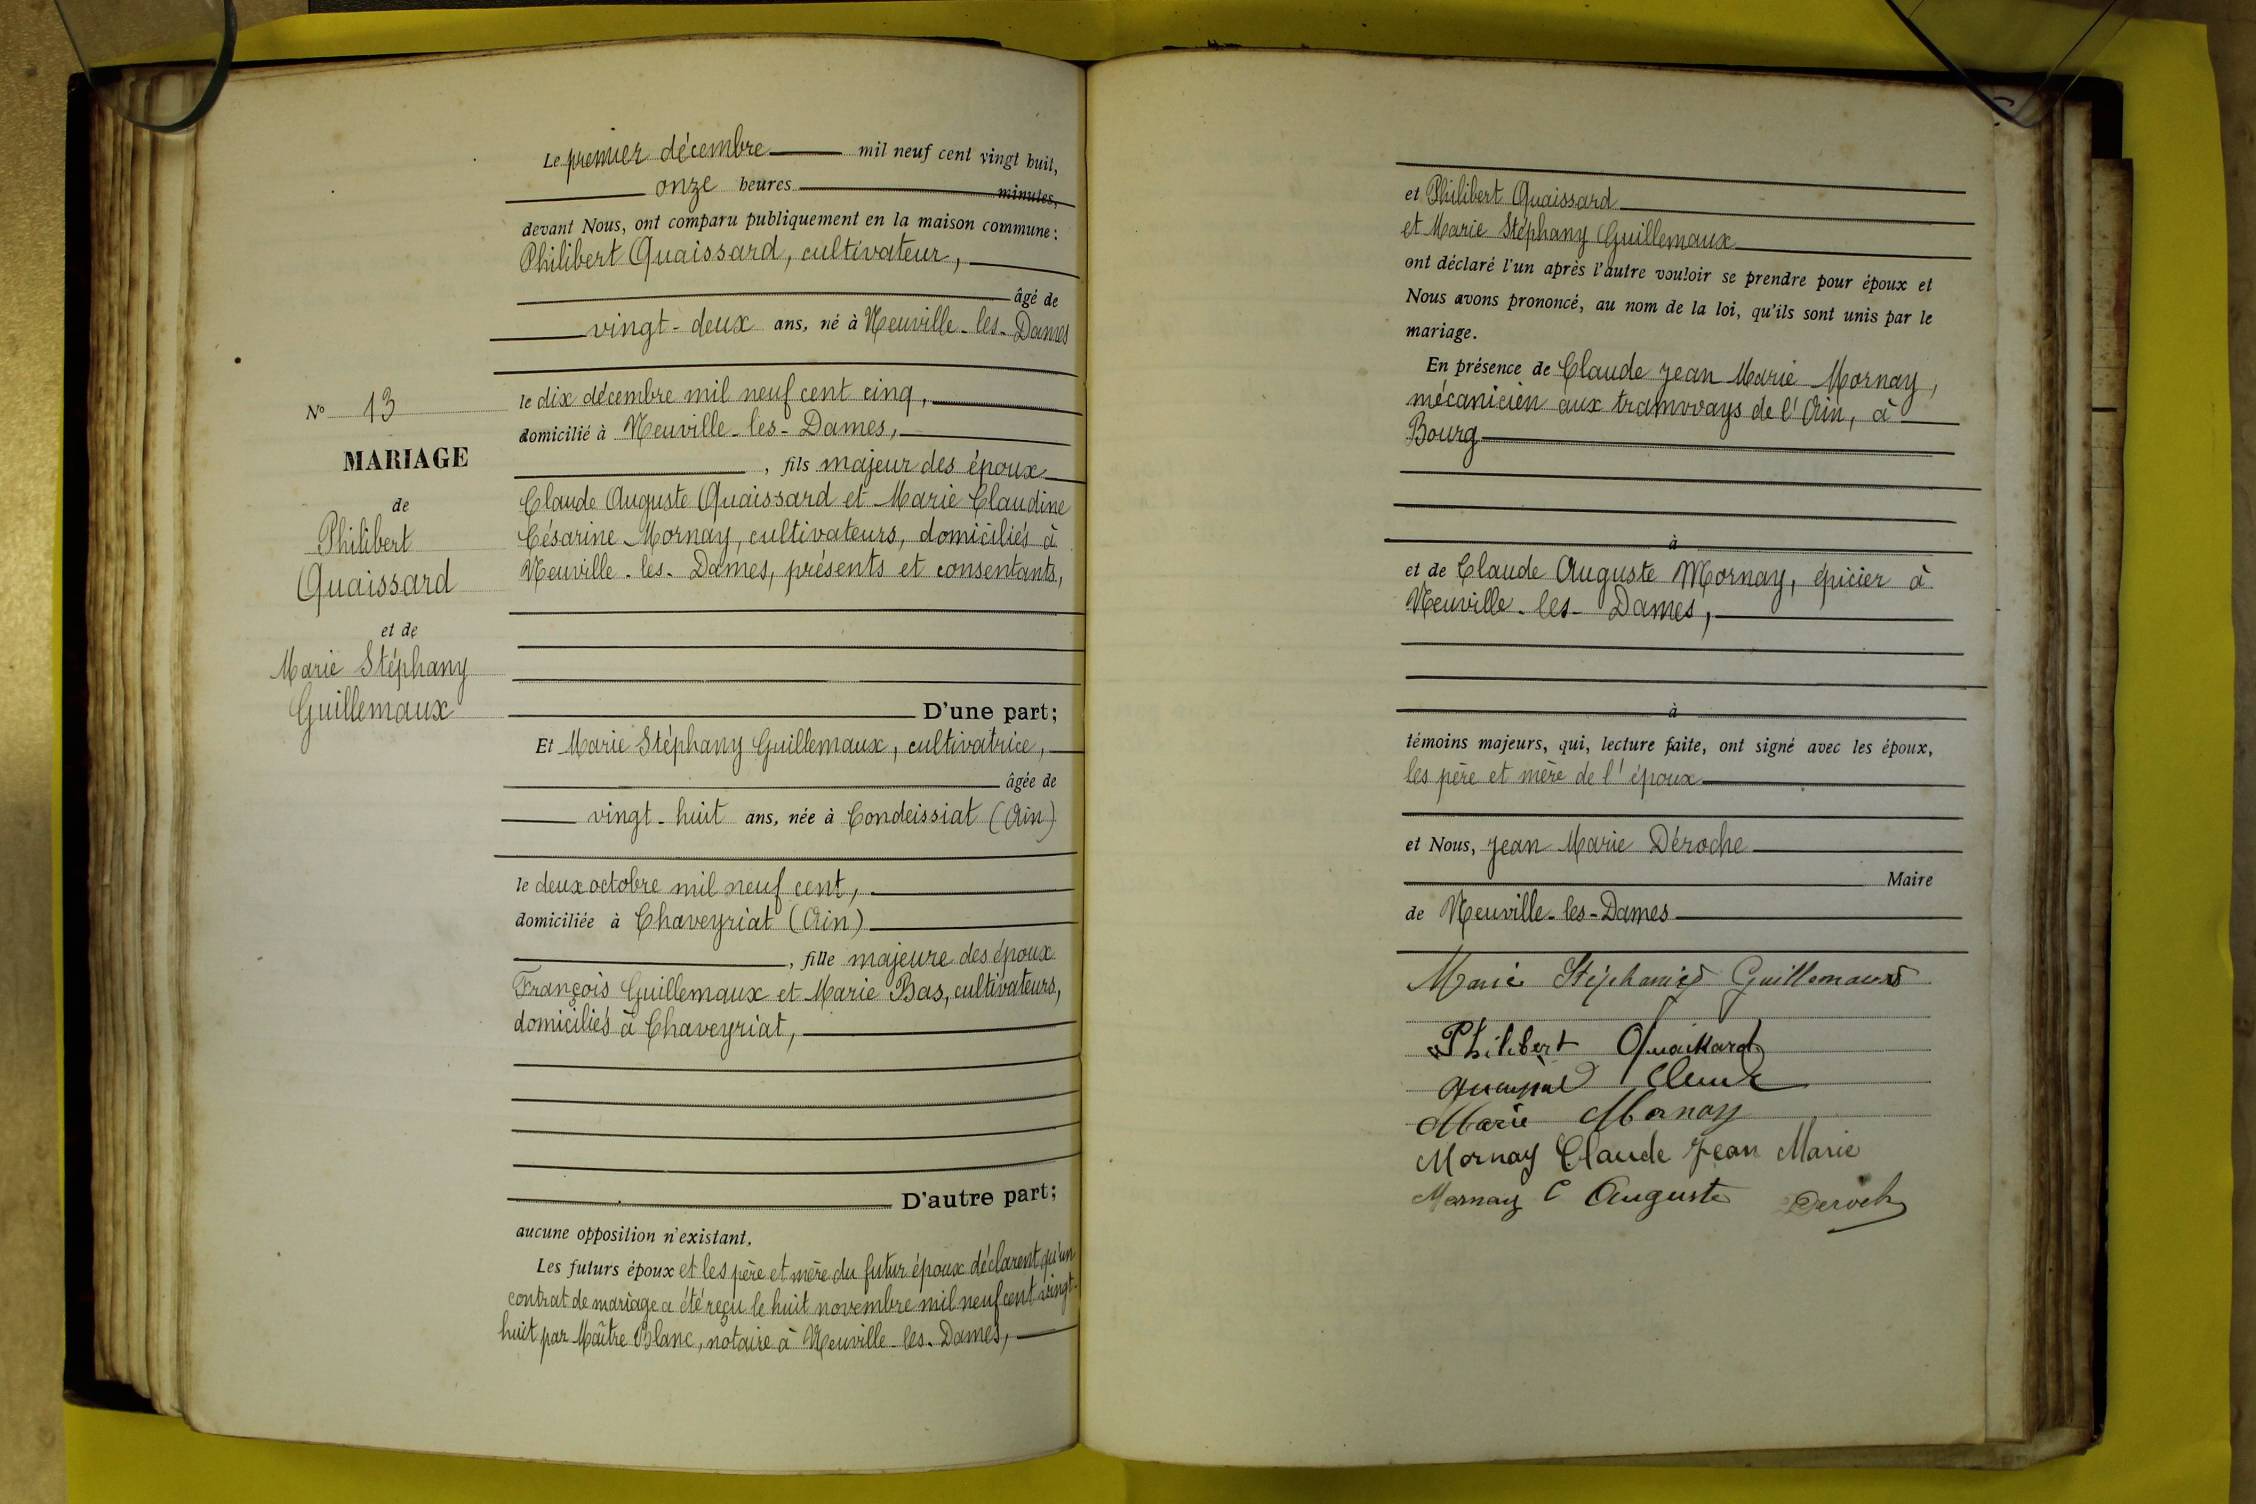 Le premier décembre mil neuf cent vingt huit,
onze heures minutes,
devant Nous, ont comparu publiquement en la maison commune:
Philibert Quaissard, cultivateur,
âgé de
vingt-deux ans, né à Neuville-les-Dames
le dix décembre mil neuf cent cinq,
domicilié à Neuville-les-Dames,
, fils majeur des époux
Claude Auguste Quaissard et Marie Claudine
Césarine Mornay, cultivateurs, domiciliés à
Neuville-les-Dames, présents et consentants,
D'une part;
Et Marie Stéphany Guillemaux, cultivatrice,
âgée de
vingt-huit ans, née à Condeissiat (Ain)
le deux octobre mil neuf cent,
domiciliée à Chaveyriat (Ain)
, fille majeure des époux
François Guillemaux et Marie Bas, cultivateurs,
domiciliés à Chaveyriat,
D'autre part;
aucune opposition n'existant.
Les futurs époux et les père et mère du futur époux déclarent qu'un
contrat de mariage a été reçu le huit novembre mil neuf cent vingt-
huit par Maître Blanc, notaire à Neuville-les-Dames,
N° 13
MARIAGE
de
Philibert
Quaissard
et de
Marie Stéphany
Guillemaux
et Philibert Quaissard
et Marie Stéphany Guillemaux
ont déclaré l'un après l'autre vouloir se prendre pour époux et
Nous avons prononcé, au nom de la loi, qu'ils sont unis par le
mariage.
En présence de Claude Jean Marie Mornay,
mécanicien aux tramways de l'Ain, à
Bourg
à
et de Claude Auguste Mornay, épicier à
Neuville-les-Dames,
à
témoins majeurs, qui, lecture faite, ont signé avec les époux,
les père et mère de l'époux
et Nous, Jean Marie Déroche
Maire
de Neuville-les-Dames
Marie Stéphanie Guillemaux
Philibert Quaissard
Marie Mornay
Mornay Claude Jean Marie
Mornay C Auguste Deroch